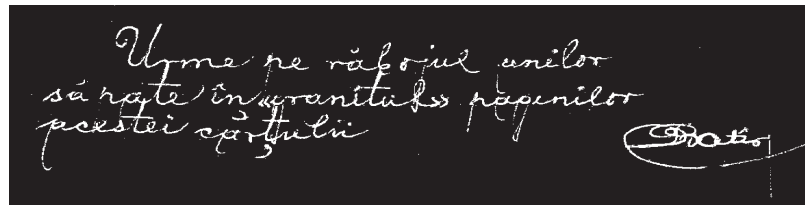 Urme pe răbojul anilor
săpate în «granitul» paginilor
acestei cărțulii